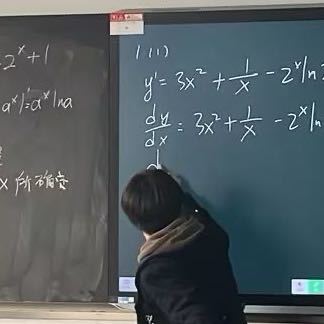 2ˣ+1
aˣ)'=aˣlna
x 所确定
1.(1)
y'=3x²+1/x-2ˣln
dy/dx=3x²+1/x-2ˣln
d